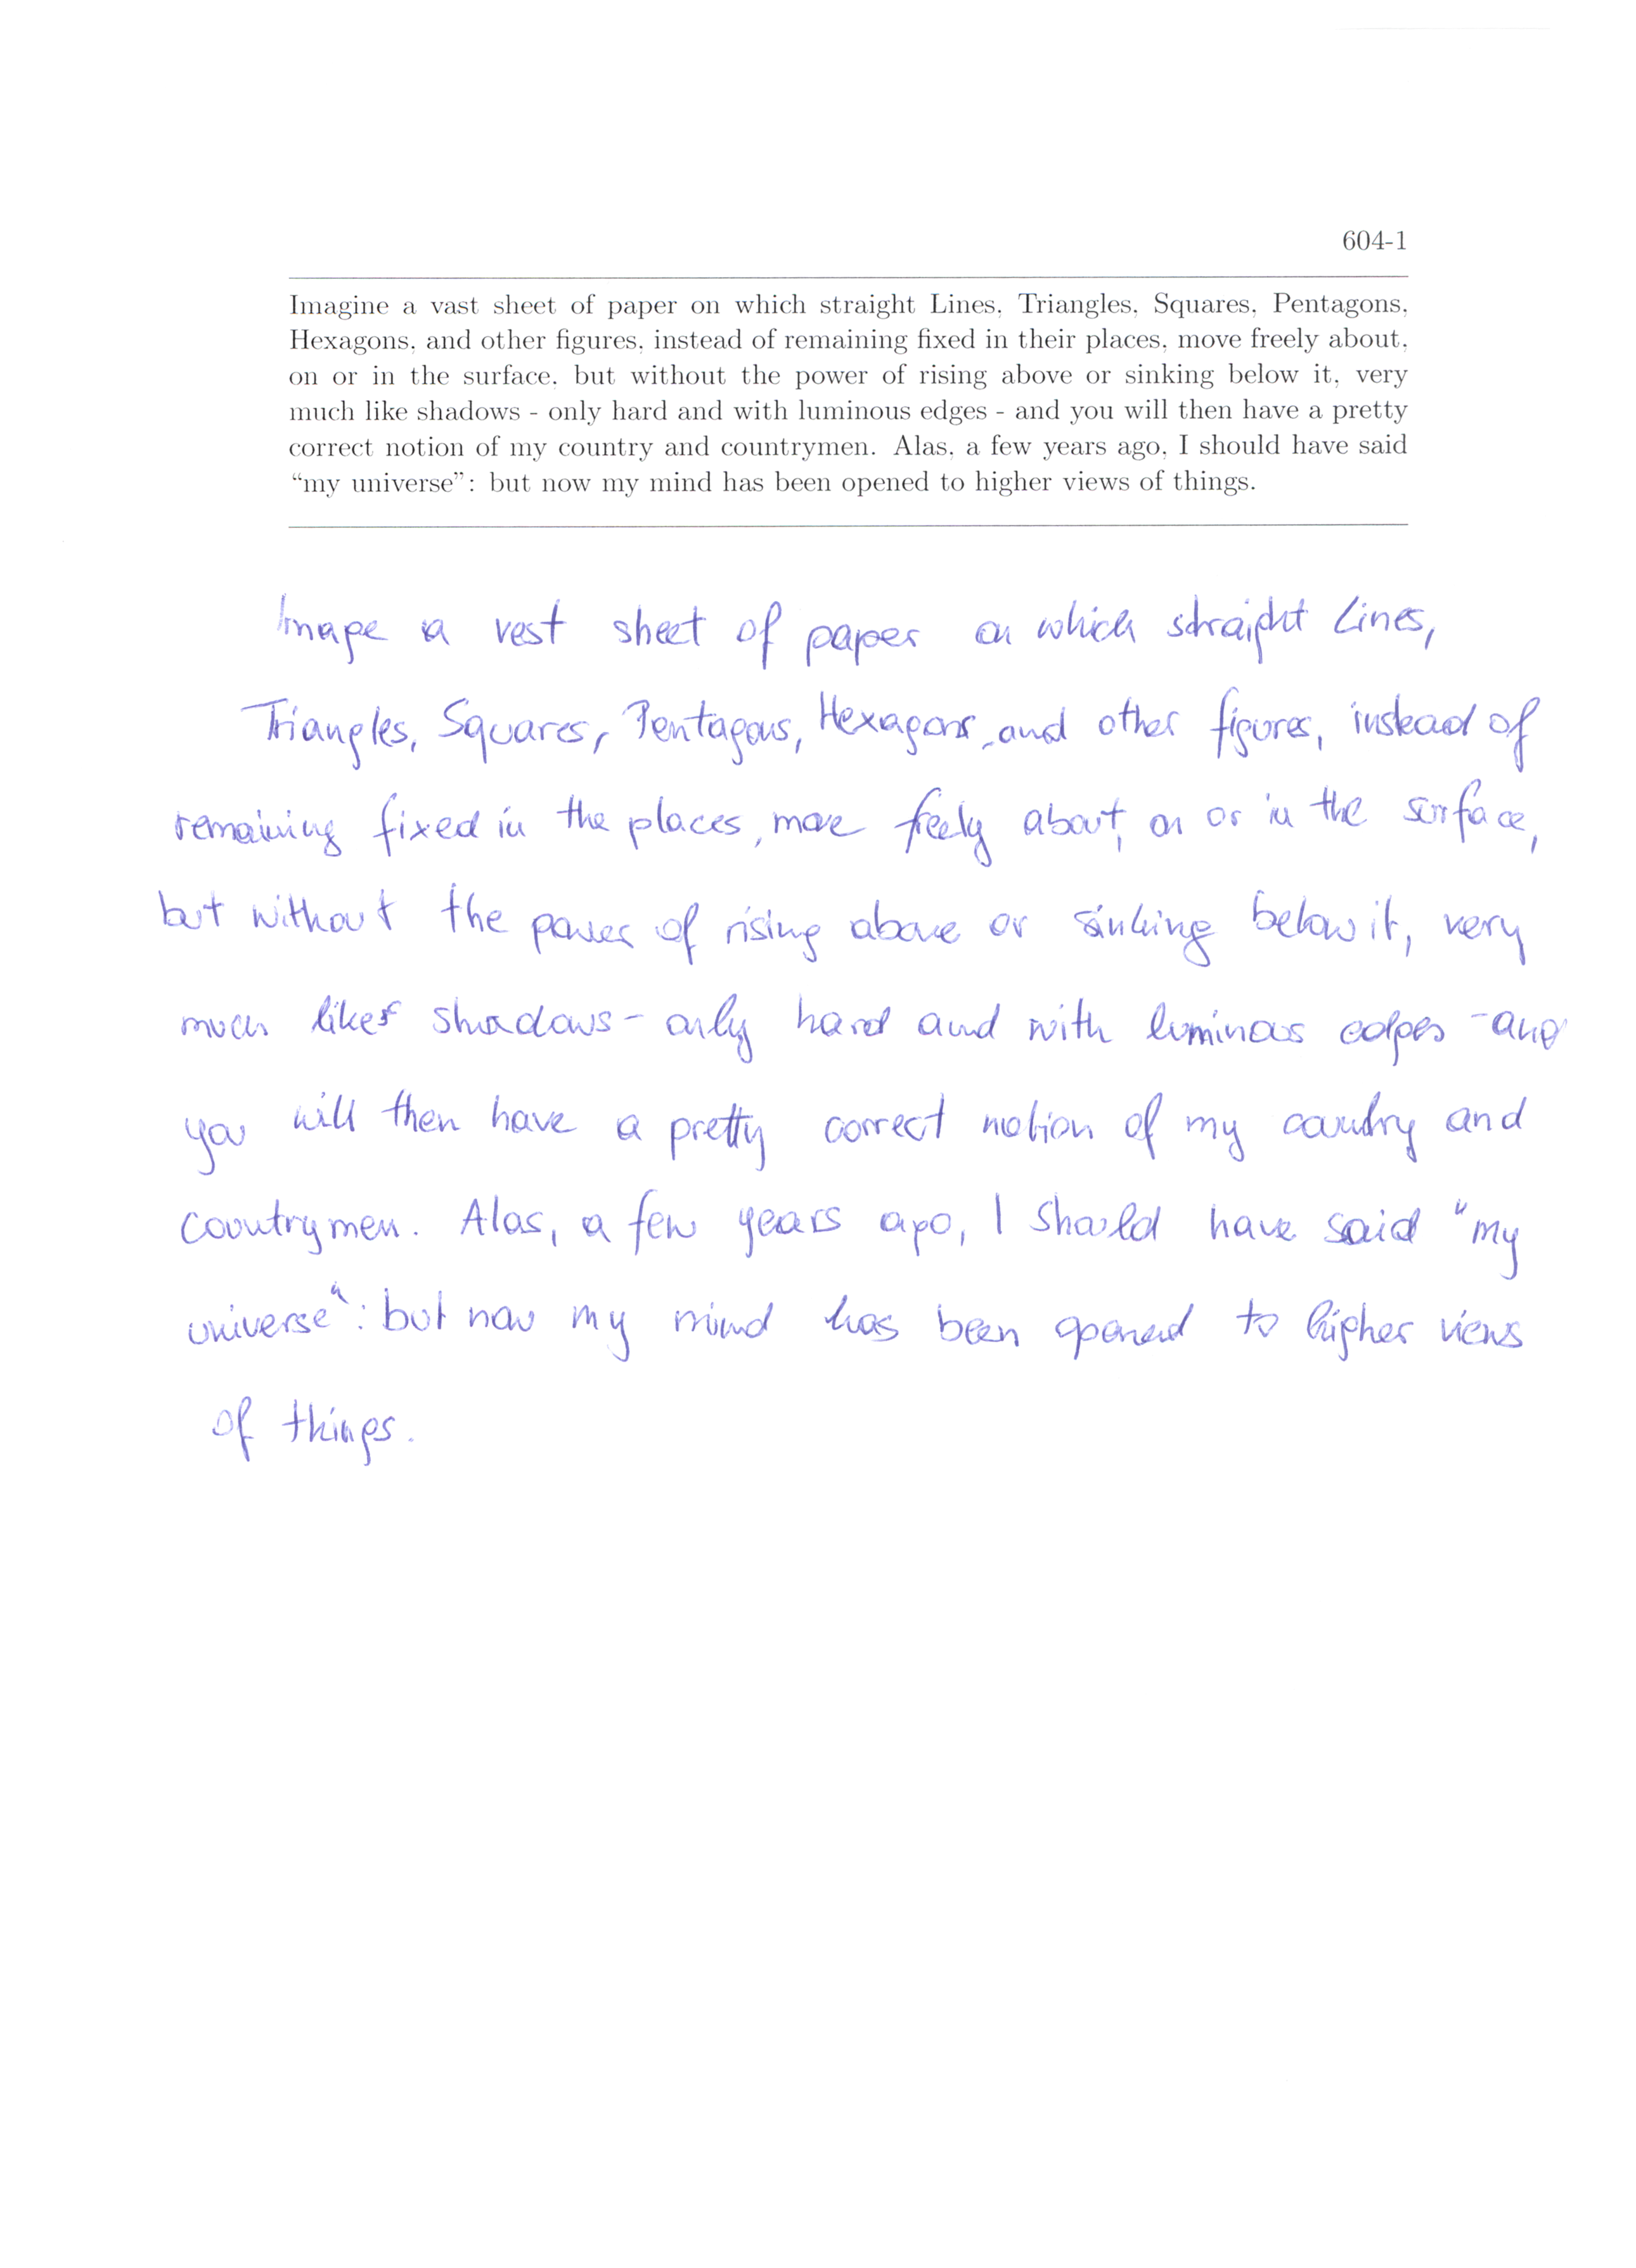 604-1
Imagine a vast sheet of paper on which straight Lines, Triangles, Squares, Pentagons,
Hexagons, and other figures, instead of remaining fixed in their places, move freely about,
on or in the surface, but without the power of rising above or sinking below it, very
much like shadows - only hard and with luminous edges - and you will then have a pretty
correct notion of my country and countrymen. Alas, a few years ago, I should have said
“my universe”: but now my mind has been opened to higher views of things.
Image a vest sheet of paper on which straight Lines,
Triangles, Squares, Pentagons, Hexagons, and other figures, instead of
remaining fixed in the places, move freely about, on or in the surface,
but without the power of rising above or sinking below it, very
much likes shadows - only hard and with luminous edges - and
you will then have a pretty correct notion of my country and
countrymen. Alas, a few years ago, I should have said "my
universe": but now my mind has been opened to higher views
of things.